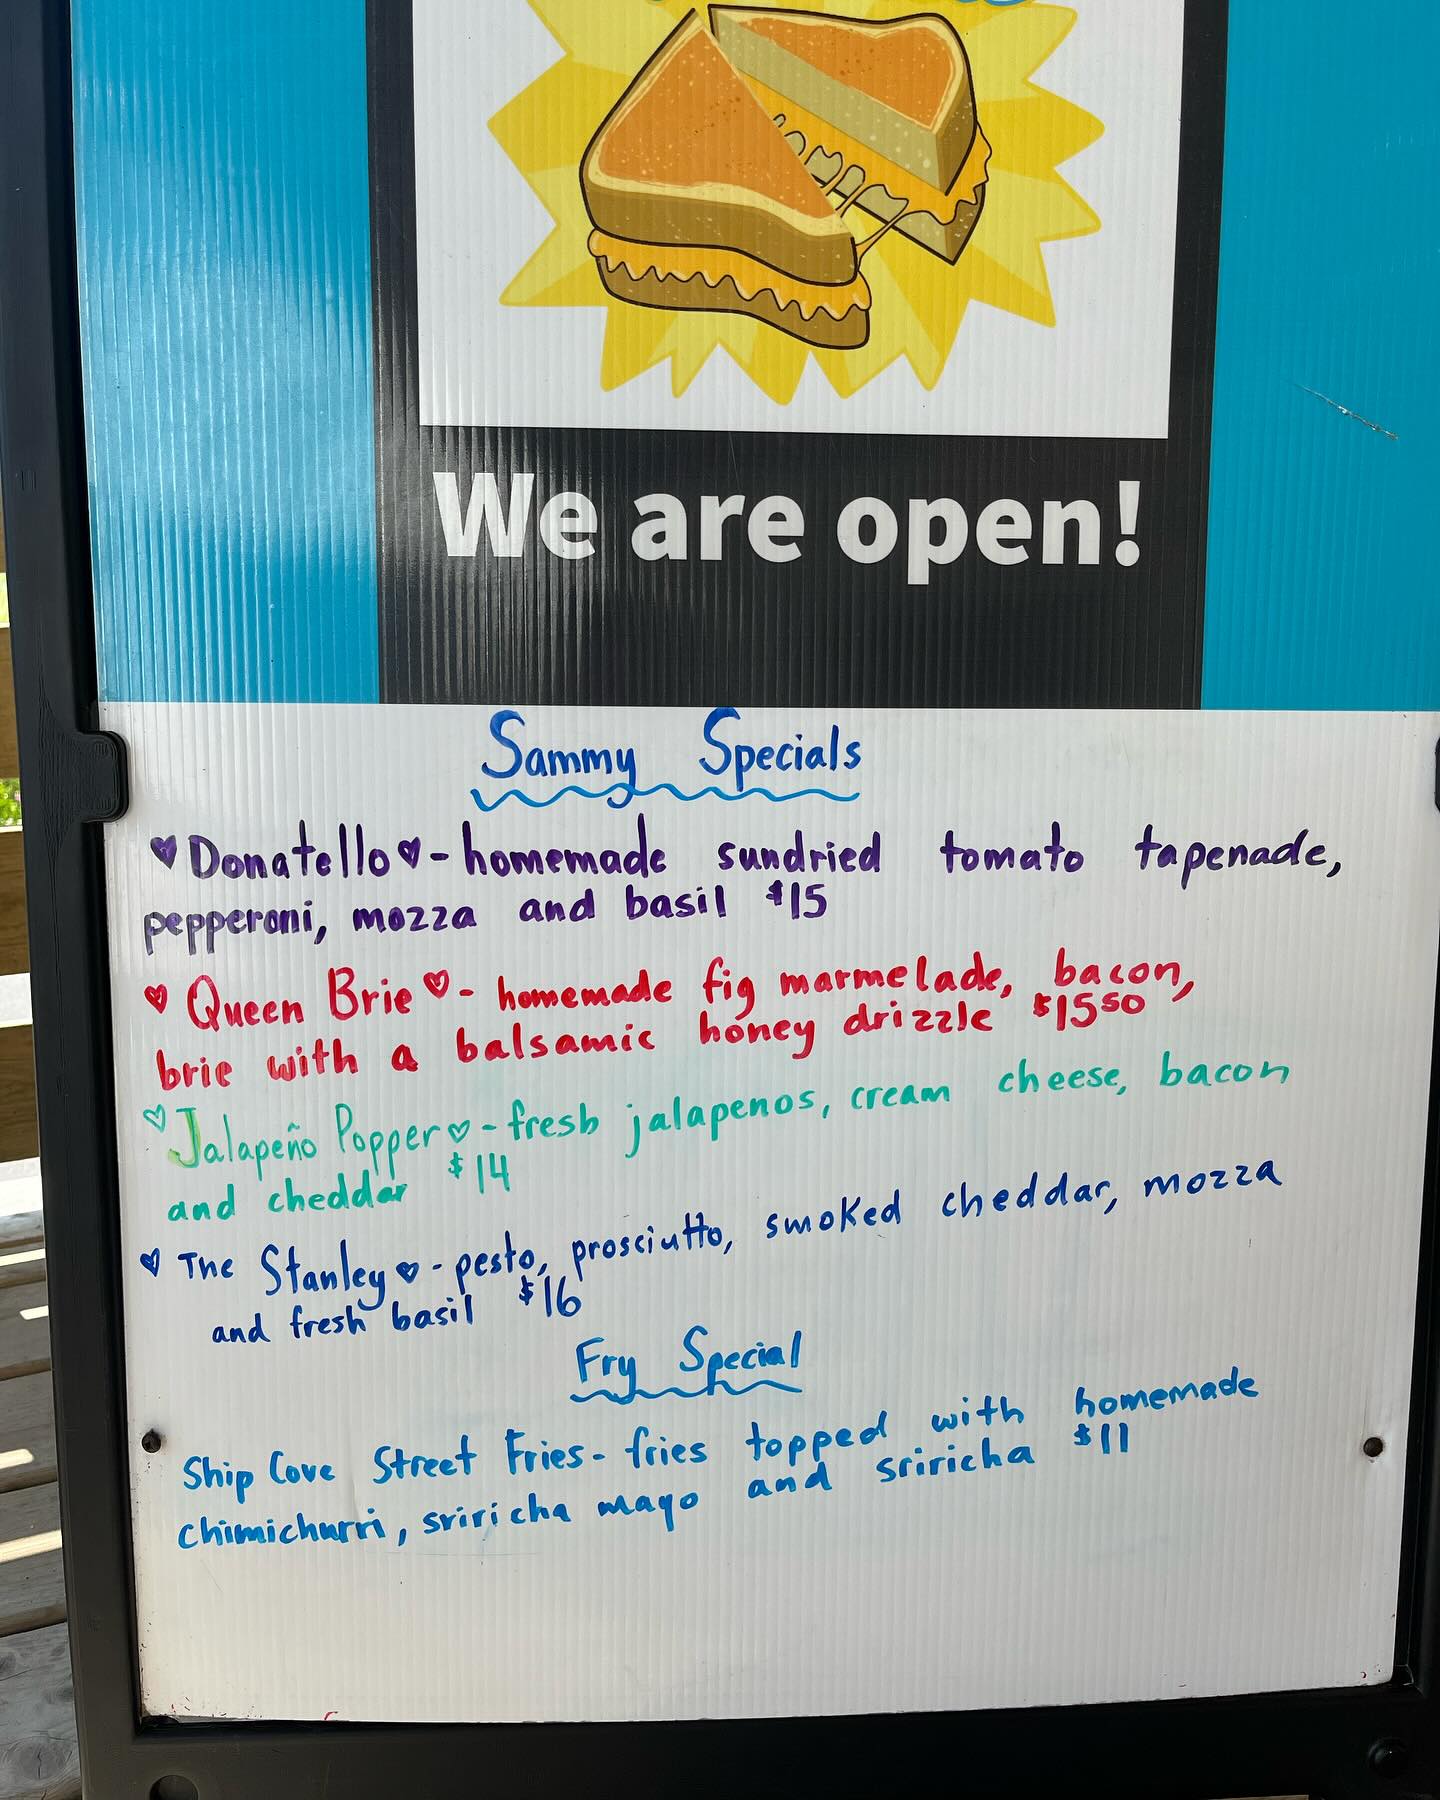 We are open!
Sammy Specials
♥Donatello♥- homemade sundried tomato tapenade,
pepperoni, mozza and basil $15
♥ Queen Brie♥- homemade fig marmelade, bacon,
brie with a balsamic honey drizzle $1550
♥Jalapeño Popper♥-fresh jalapenos, cream cheese, bacon
and cheddar $14
♥ The Stanley♥-pesto, prosciutto, smoked cheddar, mozza
and fresh basil $16
Fry Special
Ship Cove Street Fries- fries topped with homemade
chimichurri, sriricha mayo and sriricha $11